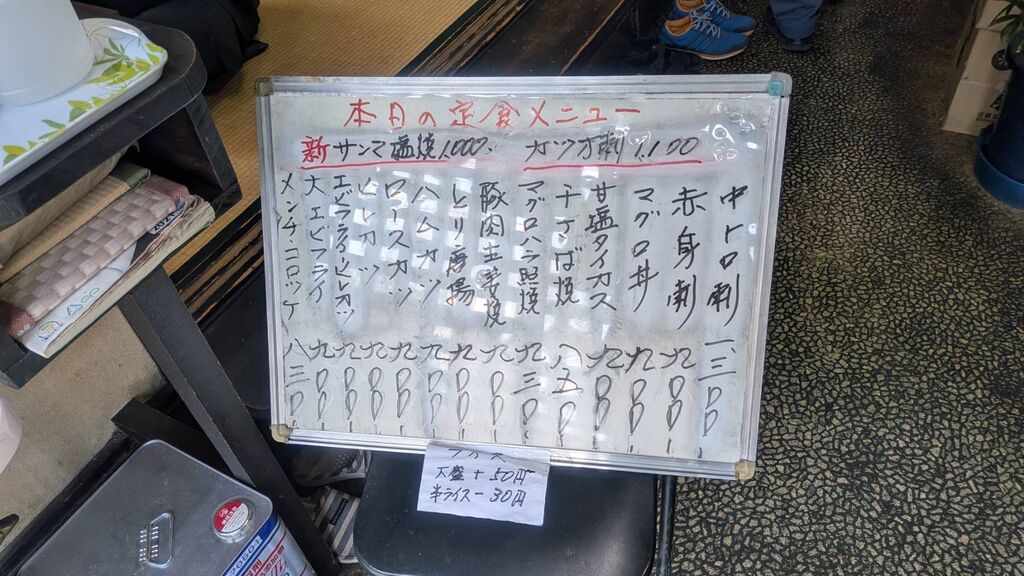 本日の定食メニュー
新 サンマ塩焼 1,000.
カツオ刺 1,100
中トロ刺 一、三〇〇
赤身刺 九〇〇、
マグロ丼 九〇〇、
甘塩タイカス 九〇〇、
子アジば焼 八五〇、
マグロハラ照焼 九三〇、
豚肉生姜焼 九〇〇、
とり唐揚 九〇〇、
ハムカツ 九〇〇
ロースカツ 九〇〇
ヒレカツ 九〇〇
エビフライ・ヒレカツ 九〇〇
大エビフライ 九〇〇
メンチ・コロッケ 八三〇
ライス
大盛 + 50円
半ライス - 30円